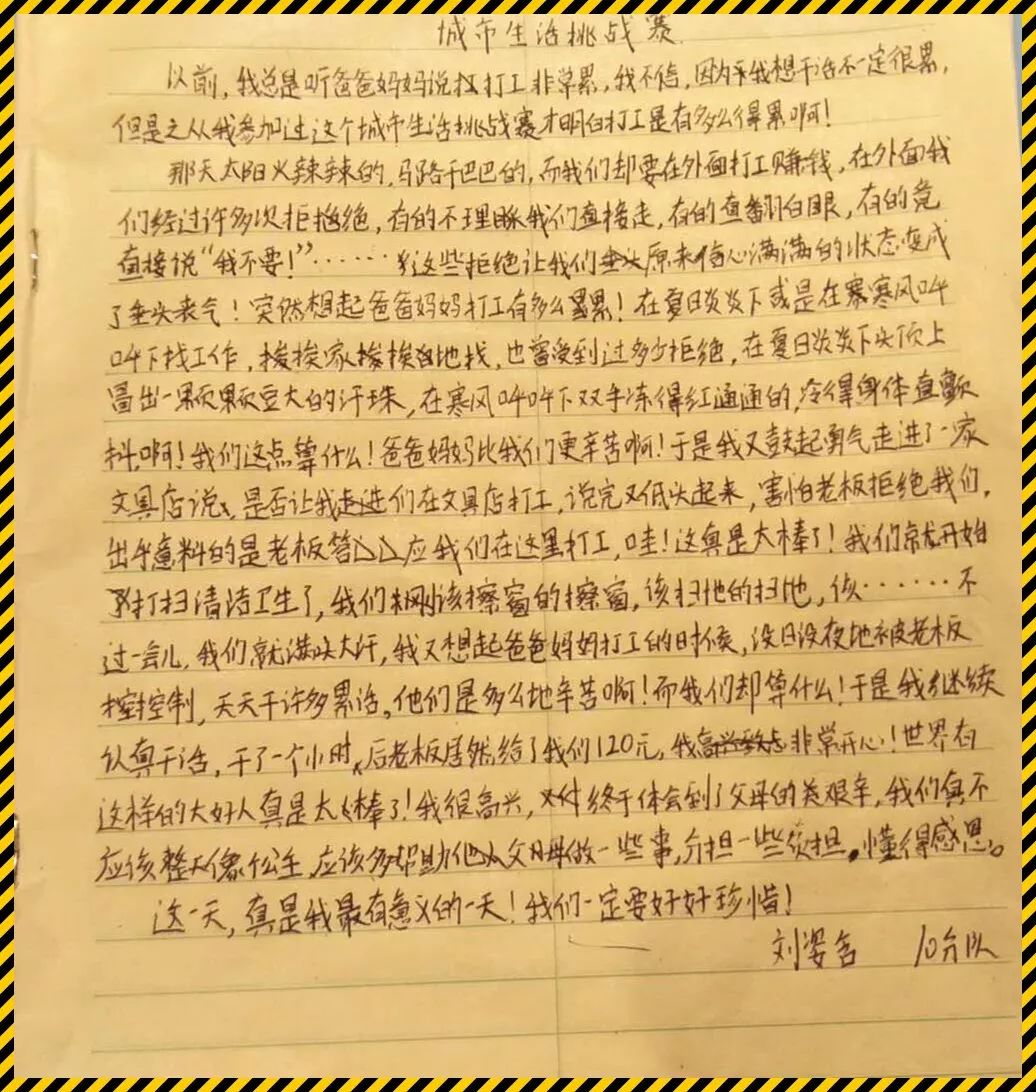 城市生活挑战赛
以前,我总是听爸爸妈妈说打工非常累,我不信,因为我想干活不一定很累,
但是之从我参加过这个城市生活挑战赛才明白打工是有多么得累啊!
那天太阳火辣辣的,马路干巴巴的,而我们却要在外面打工赚钱,在外面我
们经过许多次拒绝,有的不理睬我们直接走,有的直翻白眼,有的竟
直接说“我不要!”……这些拒绝让我们原来信心满满的状态变成
了垂头丧气!突然想起爸爸妈妈打工有多么累!在夏日炎炎下或是在寒风呼
呼下找工作,挨家挨地找,也曾受到过多少拒绝,在夏日炎炎下头顶上
冒出一颗颗豆大的汗珠,在寒风呼呼下双手冻得红通通的,冷得身体直颤
抖啊!我们这点算什么!爸爸妈妈比我们更辛苦啊!于是我又鼓起勇气走进了一家
文具店说,是否让我们在文具店打工,说完又低头起来,害怕老板拒绝我们,
出乎意料的是老板答应我们在这里打工,哇!这真是太棒了!我们就开始
打扫清洁卫生了,我们该擦窗的擦窗,该扫地的扫地,该……不
过一会儿,我们就满头大汗,我又想起爸爸妈妈打工的时候,没日没夜地被老板
控制,天天干许多累活,他们是多么地辛苦啊!而我们却算什么!于是我继续
认真干活,干了一个小时,后老板居然给了我们120元,我非常开心!世界有
这样的大好人真是太棒了!我很高兴,终于体会到了父母的艰辛,我们真不
应该整天像公主,应该多帮助父母做一些事,分担一些负担,懂得感恩。
这一天,真是我最有意义的一天!我们一定要好好珍惜!
刘姿含 10分队